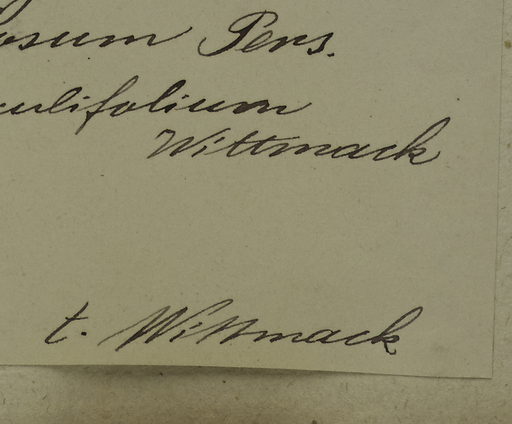 osum Pers.
culifolium
Wittmack
t. Wittmack